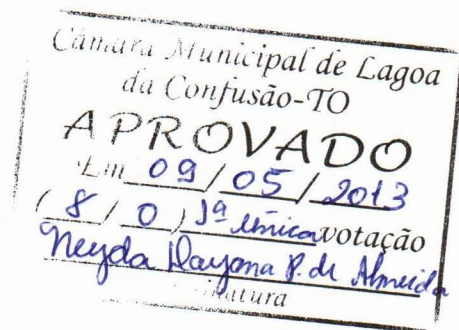 Câmara Municipal de Lagoa
da Confusão-TO
APROVADO
Em 09/05/2013
(8/0) 1ª única votação
Neyda Dayana P. de Almeida